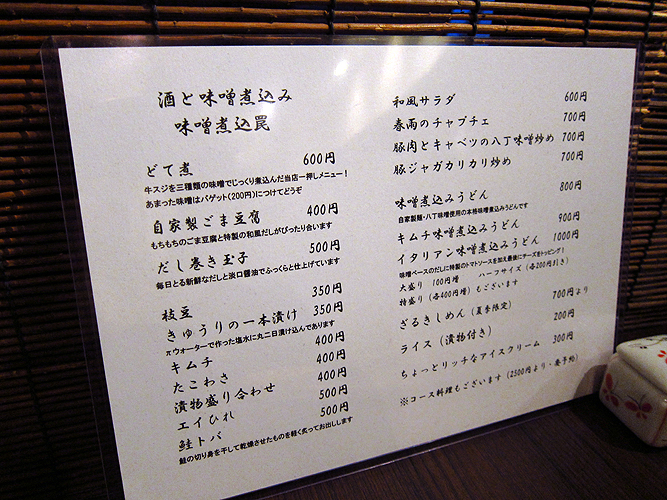 酒と味噌煮込み
味噌煮込罠
どて煮 600円
牛スジを三種類の味噌でじっくり煮込んだ当店一押しメニュー!
あまった味噌はバゲット(200円)につけてどうぞ
自家製ごま豆腐 400円
もちもちのごま豆腐と特製の和風だしがぴったり合います
だし巻き玉子 500円
毎日とる新鮮なだしと淡口醤油でふっくらと仕上げています
枝豆 350円
きゅうりの一本漬け 350円
πウォーターで作った塩水に丸二日漬け込んであります
キムチ 400円
たこわさ 400円
漬物盛り合わせ 400円
エイひれ 500円
鮭トバ 500円
鮭の切り身を干して乾燥させたものを軽く炙ってお出しします
和風サラダ 600円
春雨のチャプチェ 700円
豚肉とキャベツの八丁味噌炒め 700円
豚ジャガカリカリ炒め 700円
味噌煮込みうどん 800円
自家製麺・八丁味噌使用の本格味噌煮込みうどんです
キムチ味噌煮込みうどん 900円
イタリアン味噌煮込みうどん 1000円
味噌ベースのだしに特製のトマトソースを加え最後にチーズをトッピング!
大盛り 100円増 ハーフサイズ(各200円引き)
特盛り(各400円増)もございます
ざるきしめん(夏季限定) 700円より
ライス(漬物付き) 200円
ちょっとリッチなアイスクリーム 300円
※コース料理もございます(2500円より・要予約)